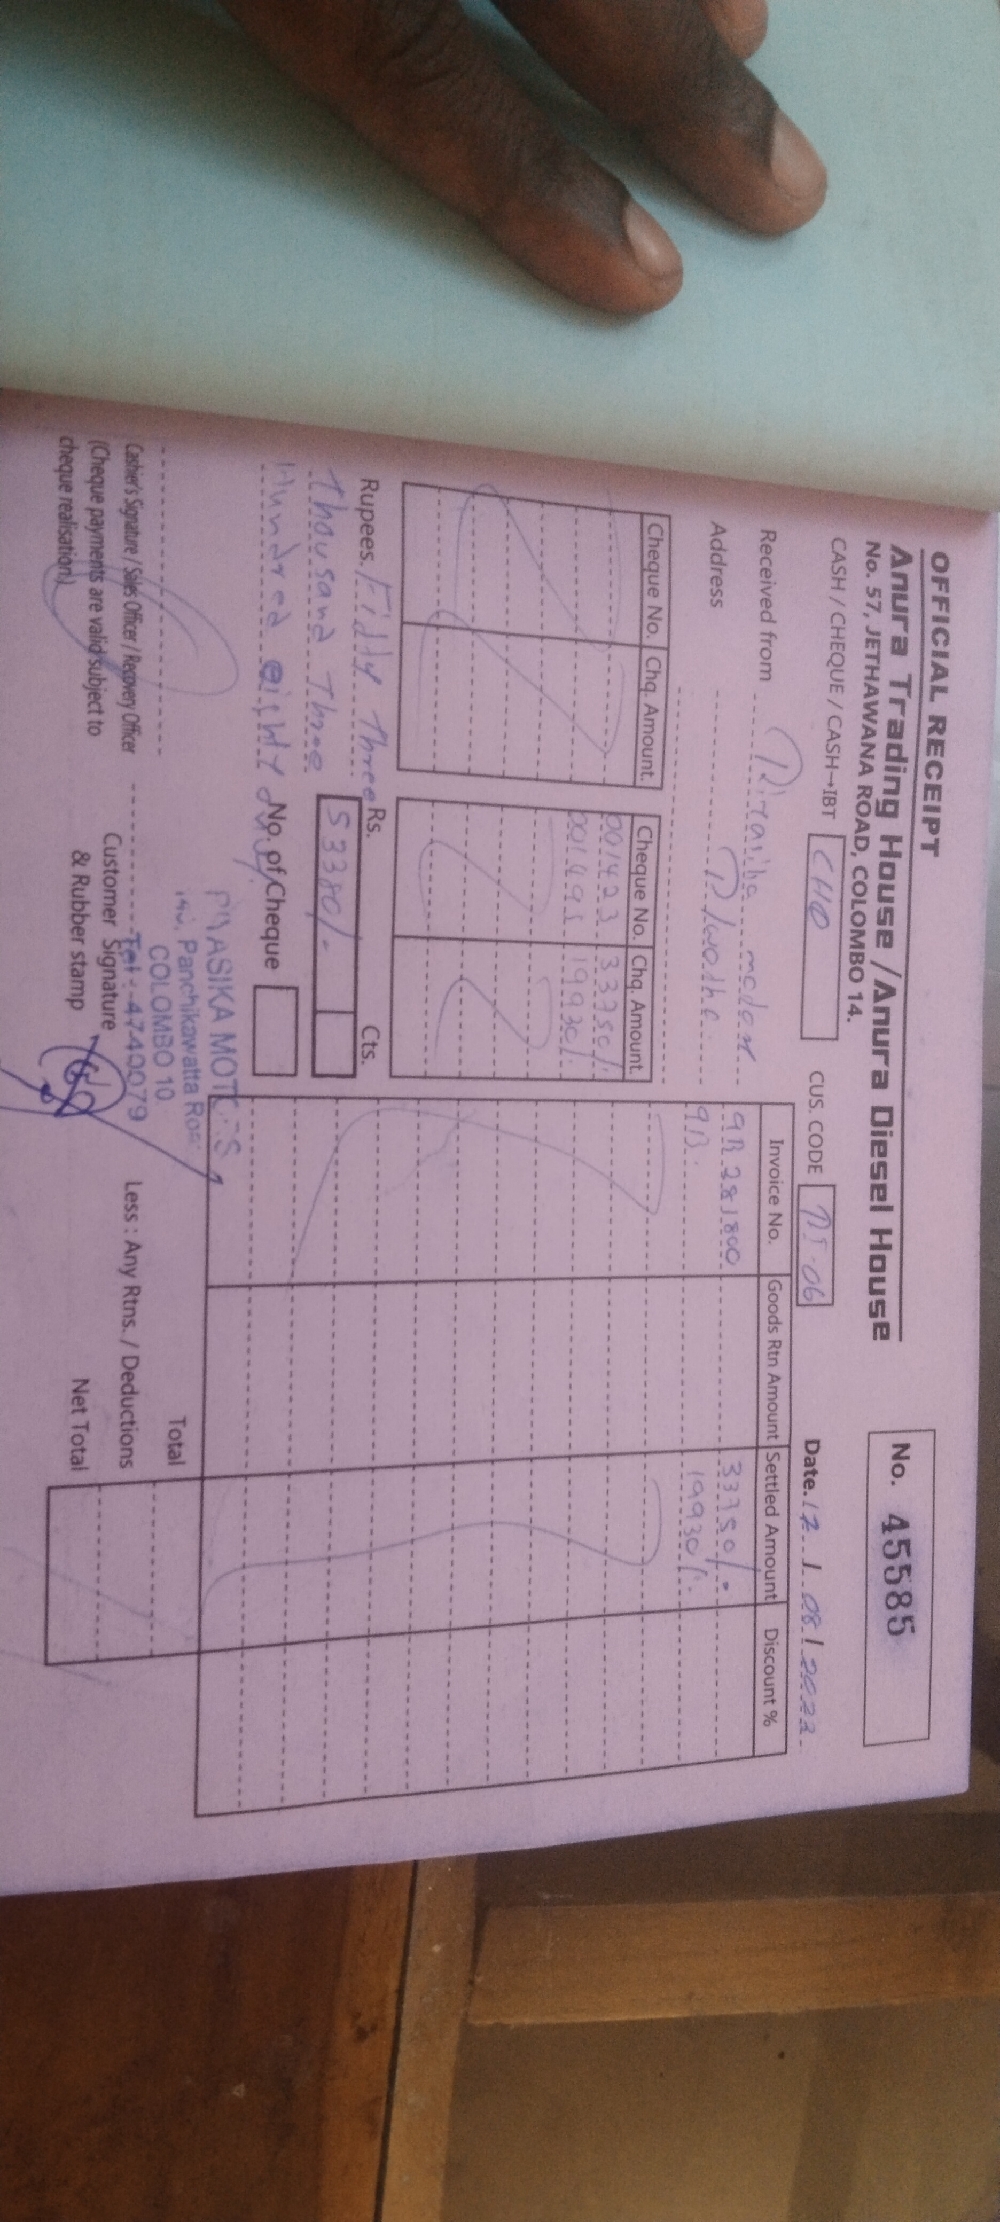 OFFICIAL RECEIPT
Anura Trading House / Anura Diesel House
No. 57, JETHAWANA ROAD, COLOMBO 14.
No. 45585
CASH / CHEQUE / CASH→IBT CHQ
CUS. CODE
Date. 17 / 08 / 2022
Received from
Address
Invoice No. Goods Rtn Amount Settled Amount Discount %
281800 33750/-
19930/-
Cheque No. Chq. Amount. Cheque No. Chq. Amount.
001423 33750/-
001495 19930/-
Rupees. Fiddy Three
Thousand Three
Hundred eighty only
Rs. Cts.
53380/-
No. of Cheque
MOTORS
Panchikawatta Road
COLOMBO 10.
Tel : 4740079
Cashier's Signature / Sales Officer / Recovery Officer
(Cheque payments are valid subject to
cheque realisation)
Customer Signature
& Rubber stamp
Total
Less : Any Rtns. / Deductions
Net Total